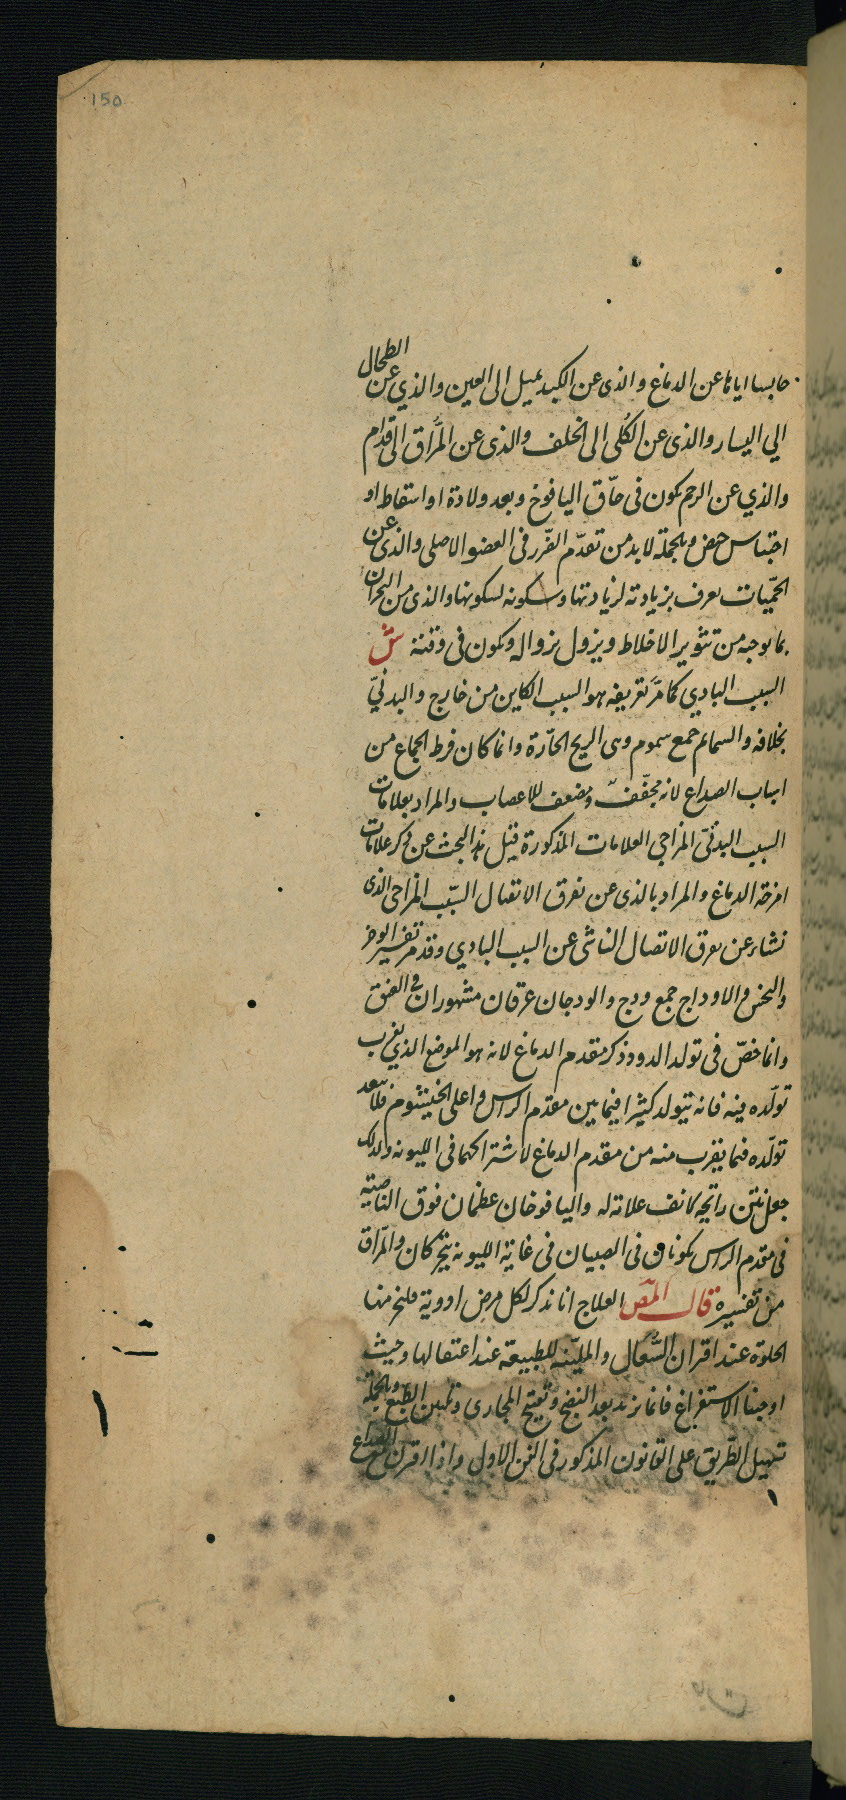 150
حابسا اياها عن الدماغ والذى عن الكبد يميل الى اليمين والذي عن الطحال
الي اليسار والذى عن الكُلى الى الخلف والذى عن المَراق الى قدام
والذي عن الرحم يكون فى حاّق اليافوخ وبعد ولادة او اسقاط او
احتباس حيض وبالجملة لا بد من تقدّم الضّرر فى العضو الاصلى والذى عن
الحمّيات يعرف بزيادته لزيادتها وسكونه لسكونها والذى من البحران
بما يوجبه من تثوير الاخلاط ويزول بزواله ويكون فى وقته ش
السبب البادي كما مَرّ تعريفه هو السبب الكاين من خارج والبدنيّ
بخلافه والسمائم جمع سموم وهى الريح الحارّة وانما كان فرط الجماع من
اسباب الصداع لانه مجفّف ومضعف للاعصاب والمراد بعلامات
السبب البدنى المزاجي العلامات المذكورة قبل هذا البحث عن ذكر علامات
امزجة الدماغ والمراد بالذى عن تفرق الاتصال السبّب المزاجى الذى
نشاء عن تفرق الاتصال الناشى عن السبب البادي وقد مرّ تفسير الوخز
والنخس والاوداج جمع ودج والودجان عرقان مشهوران في العنق
وانما خصّ فى تولد الدود ذكر مقدم الدماغ لانه هو الموضع الذي يقرب
تولّده فيه فانه يتولد كثيرا فيما بين مقدّم الراس واعلى الخيشوم فلا يبعد
تولّده فيما يقرب منه من مقدم الدماغ لاشتراكهما فى الليونه ولذلك
جعل نتن رائحة الانف علامة له واليافوخان عظمان فوق الناصية
فى مقدم الراس يكونان فى الصبيان فى غاية الليونه يتحركان والمرّاق
مرّ تفسيره قال المصّ العلاج انا نذكر لكل مرض ادوية فليخر منها
الحلوة عند اقتران السُّعال والمليّنه للطبيعة عند اعتقالها وحيث
اوجبنا الاستفراغ فانما نريد بعد النضج وتفتيح المجارى وتليين الطبع وبالجملة
تسهيل الطّريق على القانون المذكور فى الفن الاول واذا اقترن مع الصداع